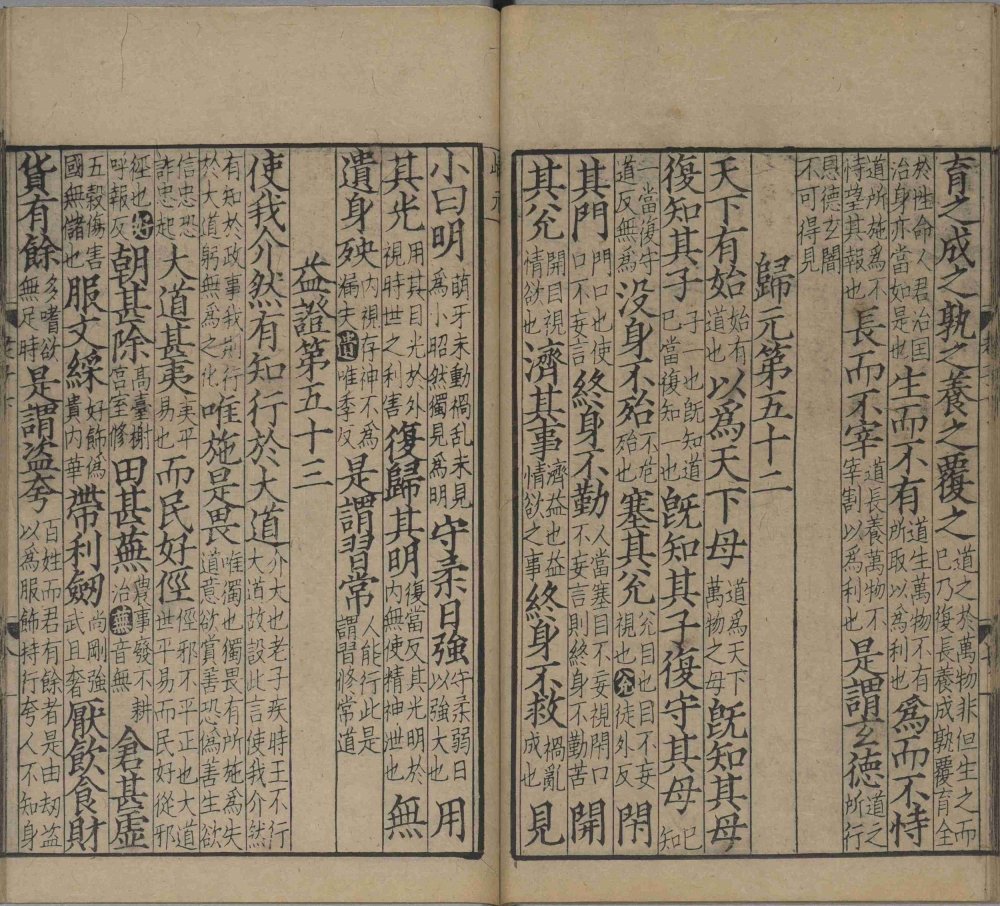 育之成之孰之養之覆之道之於萬物非但生之而已乃復長養成孰覆育全
於性命人君治国治身亦當如是也生而不有道生萬物不有所取以為利也為而不恃
道所施為不恃望其報也長而不宰道長養萬物不宰割以為利也是謂玄德道之所行
恩德玄闇不可得見
歸元第五十二
天下有始始有道也以為天下母道為天下萬物之母既知其母
復知其子子一也既知道已當復知一也既知其子復守其母已知
一當復守道反無為没身不殆不危殆也塞其兌兌目也目不妄視也兌徒外反閇
其門門口也使口不妄言終身不勤人當塞目不妄視閇口不妄言則終身不勤苦開
其兌開目視情欲也濟其事濟益也益情欲之事終身不救禍亂成也見
小曰明萌牙未動禍乱未見為小昭然獨見為明守柔日強守柔弱日以強大也用
其光用其目光於外視時世之利害復歸其明復當反其光明於内無使精神泄也無
遺身殃内視存神不為漏失遺唯季反是謂習常人能行此是謂習修常道
益證第五十三
使我介然有知行於大道介大也老子疾時王不行大道故設此言使我介然
有知於政事我則行於大道躬無為之化唯施是畏唯獨也獨畏有所施為失道意欲賞善恐偽善生欲
信忠恐詐忠起大道甚夷夷平易也而民好徑徑邪不平正也大道世平易而民好從邪
經也好呼報反朝甚除高臺榭宮室修田甚蕪農事廢不耕治蕪音無倉甚虛
五穀傷害國無儲也服文綵好飾偽貴内華帶利劔尚剛強武且奢厭飲食財
貨有餘多嗜欲無足時是謂盜夸百姓而君有餘者是由劫盜以為服飾持行夸人不知身